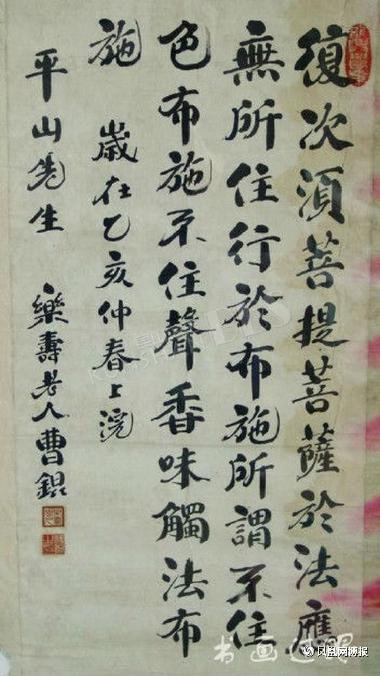 復次須菩提菩薩於法應
無所住行於布施所謂不住
色布施不住聲香味觸法布
施
歲在乙亥仲春上浣
平山先生
樂壽老人曹錕
书画过眼
凤凰网博报